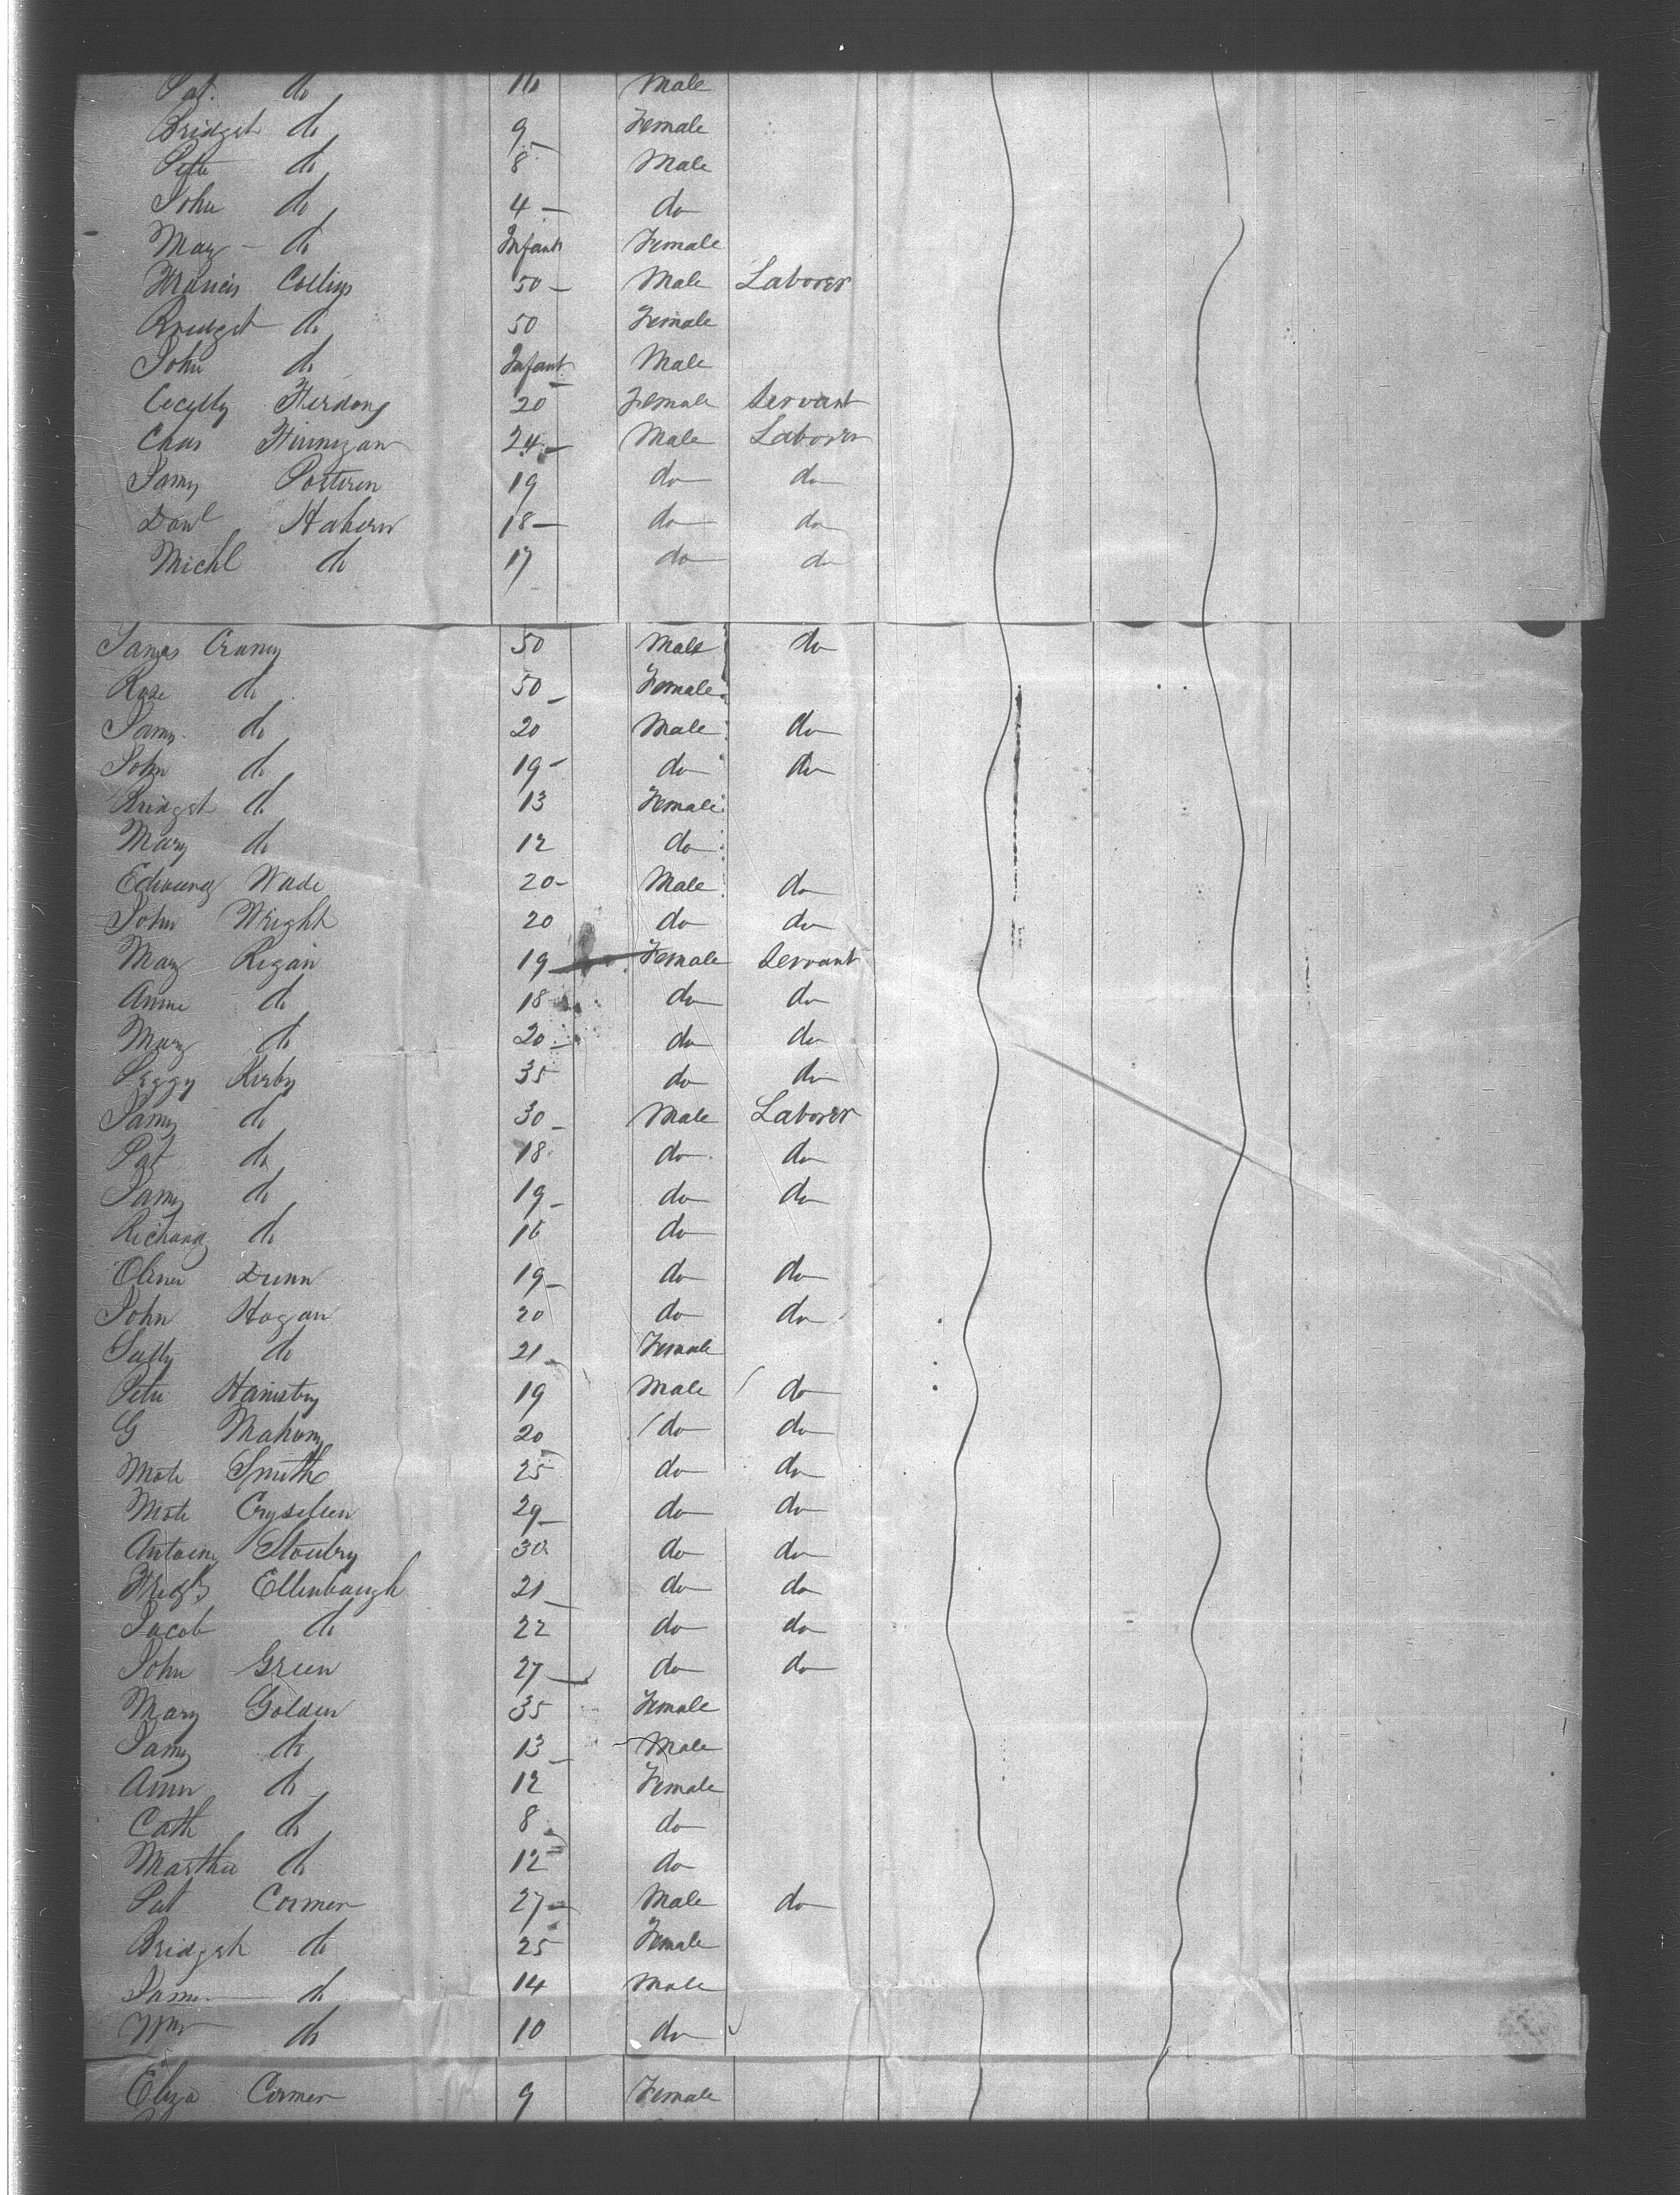 Pat. do 10 Male
Bridget do 9 Female
Peter do 8 Male
John do 4 do
Mary do Infant Female
Francis Collins 50 Male Laborer
Bridget do 50 Female
John do Infant Male
Cecilly 20 Female Servant
Chas Finnegan 24 Male Laborer
James 19 do do
Danl Hahern 18 do do
Michl do 17 do do
James Crany 50 Male do
Rose do 50 Female
James do 20 Male do
John do 19 do do
Bridget do 13 Female
Mary do 12 do
Edward Wade 20 Male do
John Wright 20 do do
Mary Regan 19 Female Servant
Anne do 18 do do
Mary do 20 do do
Peggy Kirby 35 do do
James do 30 Male Laborer
Pat do 18 do do
James do 19 do do
Richard do 16 do
Oliver Dunn 19 do do
John Hogan 20 do do
Sally do 21 Female
Peter 19 Male do
G Mahony 20 do do
Smith 25 do do
29 do do
Antoine 30 do do
Ellenbaugh 21 do do
Jacob do 22 do do
John Green 27 do do
Mary Golden 35 Female
James do 13 Male
Ann do 12 Female
Cath do 8 do
Martha do 12 do
Pat Cormer 27 Male do
Bridget do 25 Female
James do 14 Male
Wm do 10 do
Eliza Cormer 9 Female